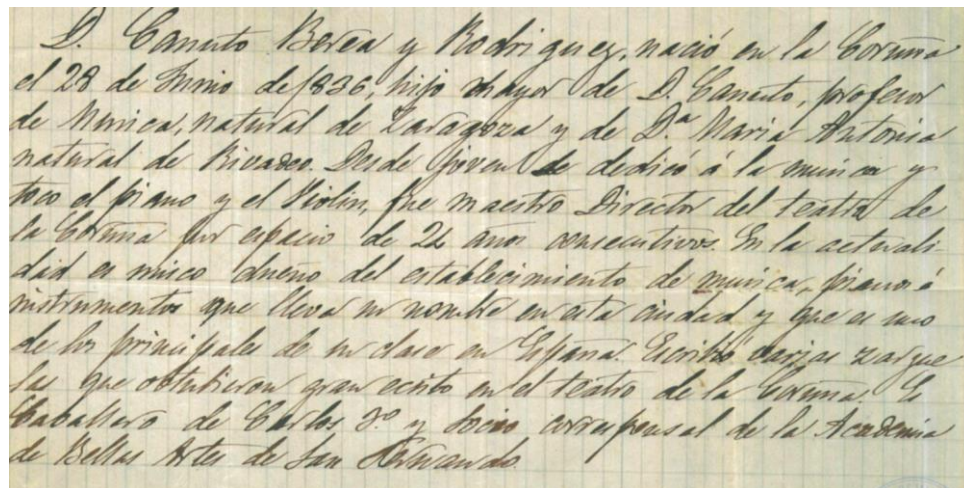 D. Canuto Berea y Rodriguez, nació en la Coruña
el 28 de Junio de 1836, hijo mayor de D. Canuto, profesor
de Musica, natural de Zaragoza y de D.ª Maria Antonia
natural de Rivadeo. Desde joven se dedicó á la musica y
toco el piano y el Violin, fue maestro Director del teatro de
la Coruña por espacio de 24 años consecutivos. En la actuali
dad es unico dueño del establecimiento de musica, pianos é
instrumentos que lleva su nombre en esta ciudad y que es uno
de los principales de su clase en España. Escribió varias zarzue
las que obtubieron gran ecsito en el teatro de la Coruña. Es
Caballero de Carlos 3.º y Socio corresponsal de la Academia
de Bellas Artes de San Fernando.